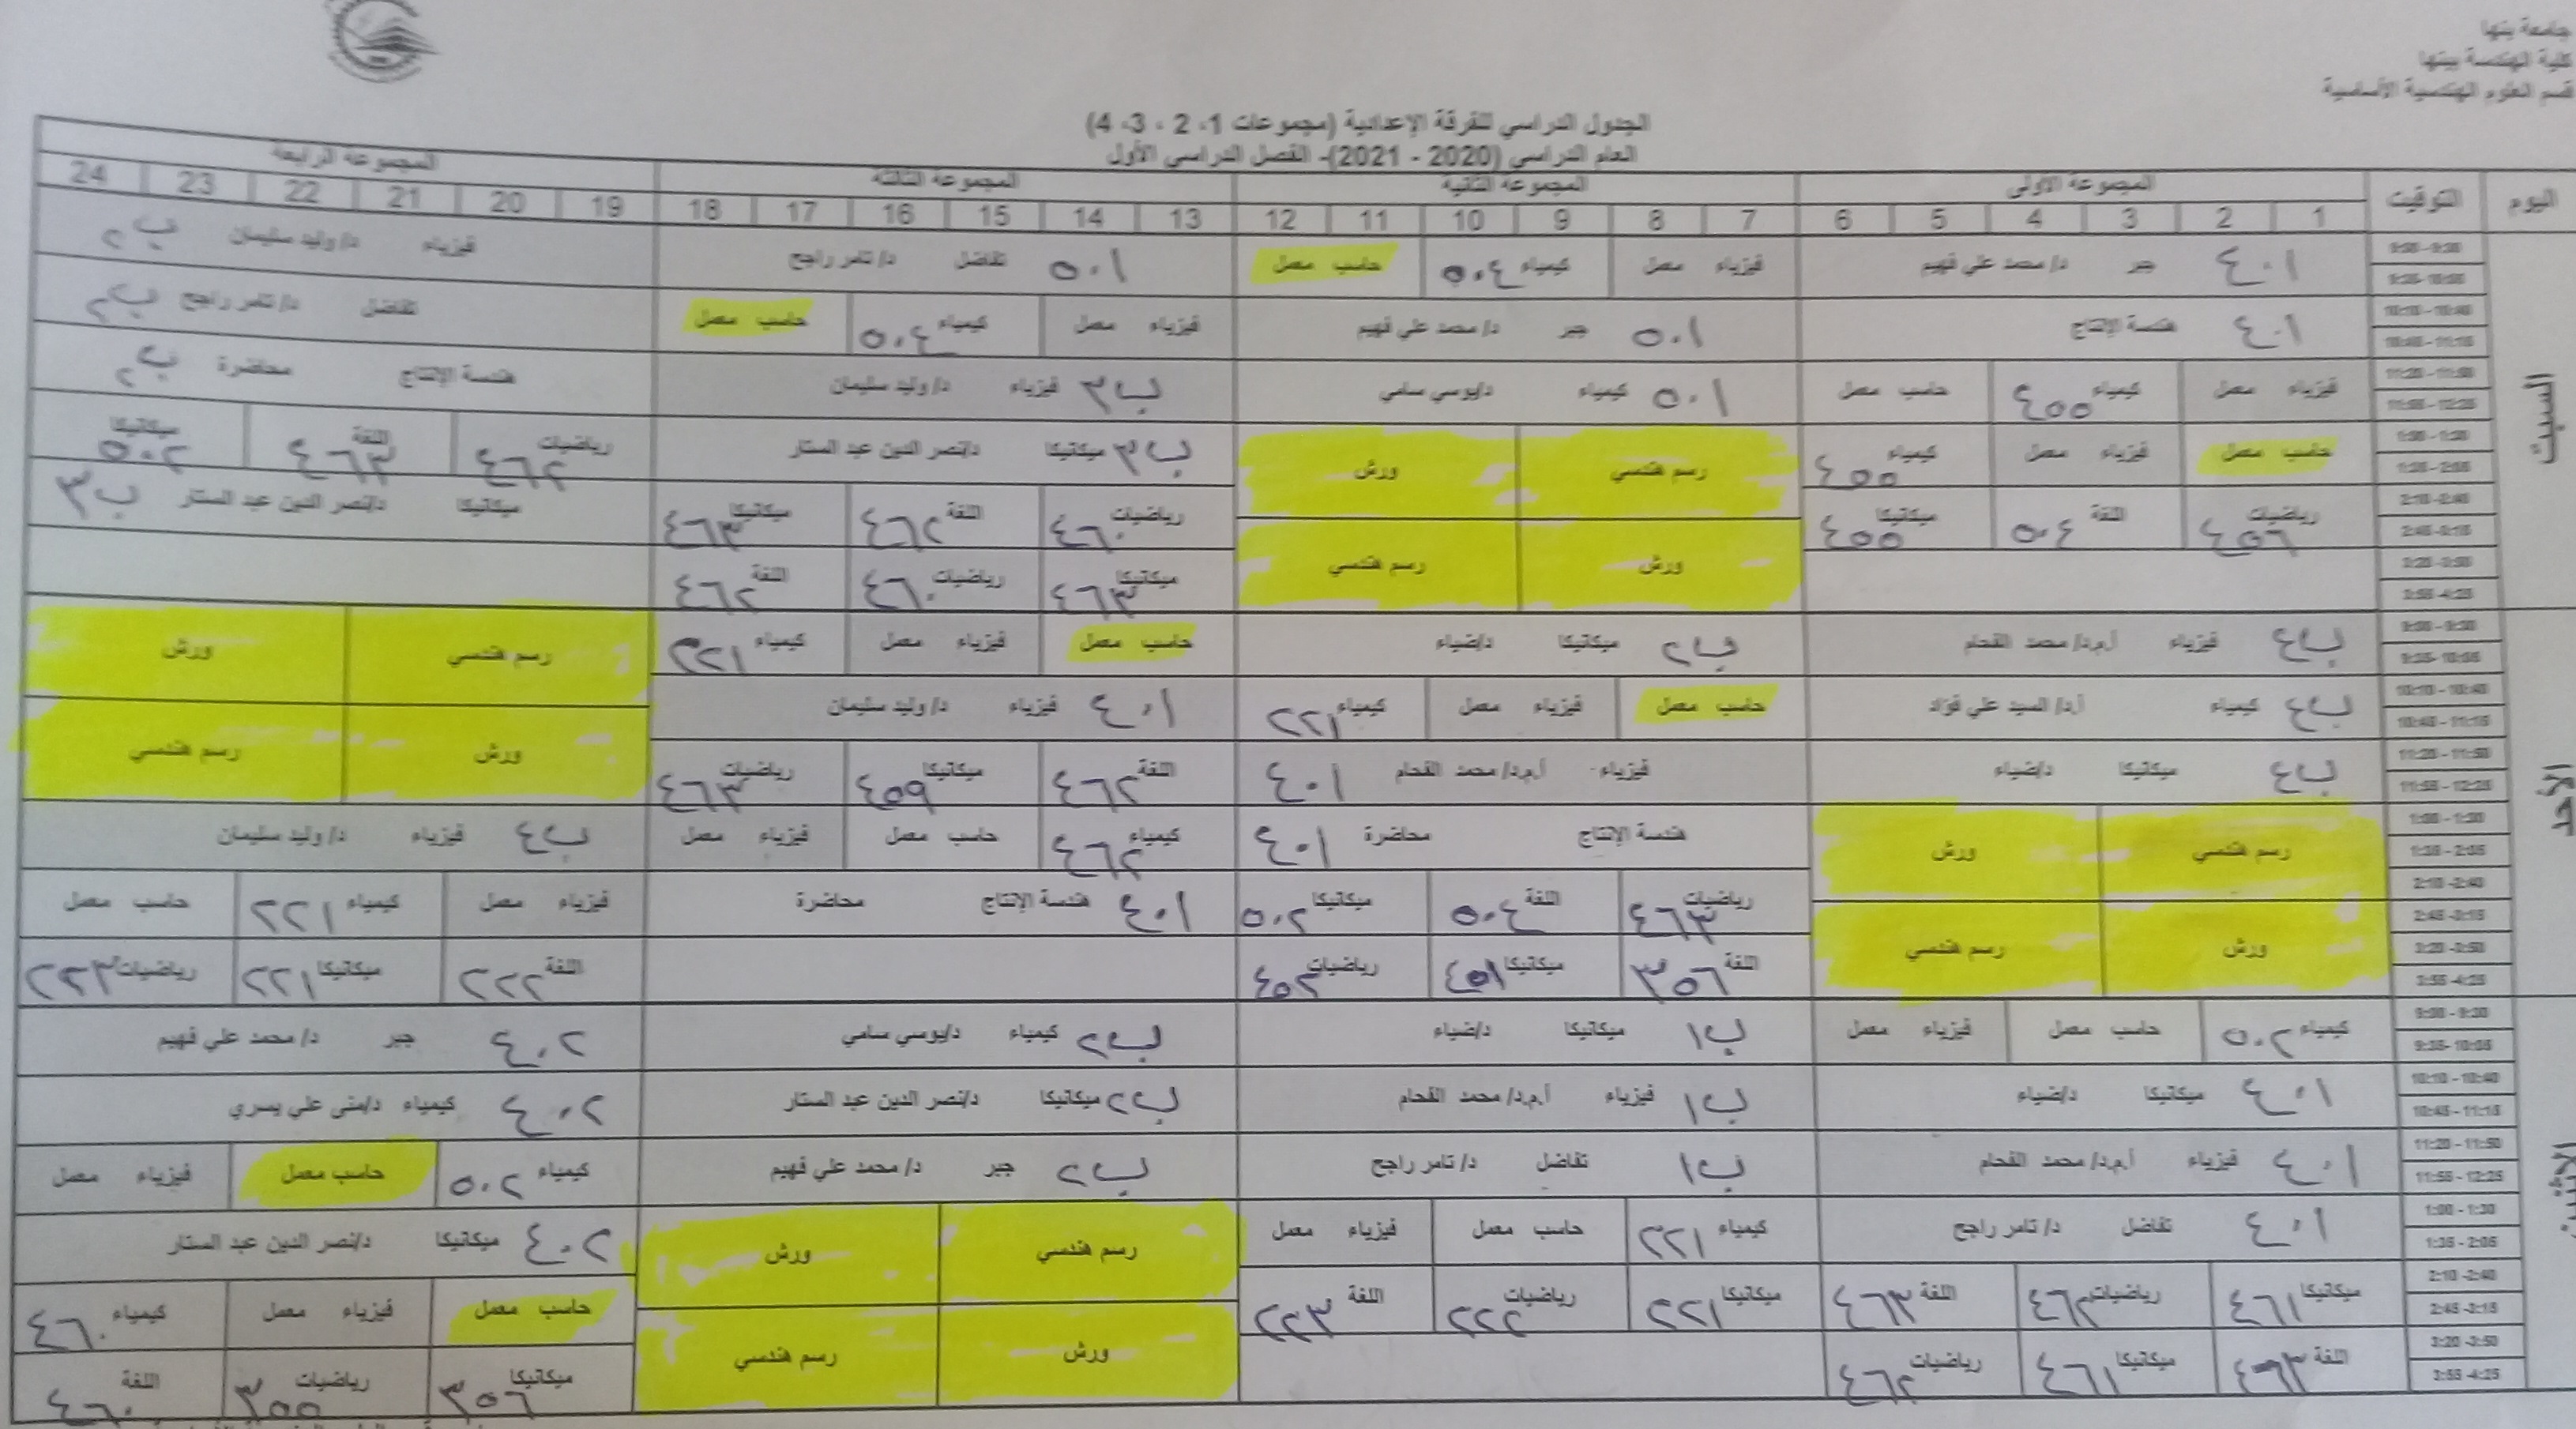 جامعة بنها
كلية الهندسة ببنها
قسم العلوم الهندسية الأساسية
الجدول الدراسي للفرقة الإعدادية (مجموعات 1، 2 ، 3، 4)
العام الدراسي (2020 - 2021)- الفصل الدراسي الأول
اليوم التوقيت المجموعة الأولى المجموعة الثانية المجموعة الثالثة المجموعة الرابعة
1 2 3 4 5 6 7 8 9 10 11 12 13 14 15 16 17 18 19 20 21 22 23 24
السبت
9:00 - 9:30 ١٠٤ جبر د/ محمد علي فهيم فيزياء معمل كيمياء ٤٠٥ حاسب معمل ١٠٥ تفاضل د/ تامر راجح فيزياء د/ وليد سليمان ب٢
9:35- 10:05
10:10 - 10:40 ١٠٤ هندسة الإنتاج ١٠٥ جبر د/ محمد علي فهيم فيزياء معمل كيمياء ٤٠٥ حاسب معمل تفاضل د/ تامر راجح ب٢
10:45 - 11:15
11:20 - 11:50 فيزياء معمل كيمياء ٤٥٥ حاسب معمل ١٠٥ كيمياء د/يوسي سامي ب٣ فيزياء د/ وليد سليمان هندسة الإنتاج محاضرة ب٢
11:55 - 12:25
1:00 - 1:30 حاسب معمل فيزياء معمل كيمياء ٤٥٥ رسم هندسي ورش ب٣ ميكانيكا د/نصر الدين عبد الستار رياضيات ٤٦٢ اللغة ٤٦٣ ميكانيكا ٥٠٢
1:35 - 2:05
2:10 -2:40 رياضيات ٤٥٦ اللغة ٤٠٥ ميكانيكا ٤٥٥ رياضيات ٤٦٠ اللغة ٤٦٢ ميكانيكا ٤٦٣ ميكانيكا د/نصر الدين عبد الستار ب٣
2:45 -3:15 ورش رسم هندسي
3:20 -3:50 ميكانيكا ٤٦٣ رياضيات ٤٦٠ اللغة ٤٦٢
3:55 -4:25
الأحد
9:00 - 9:30 ب٤ فيزياء أ.م.د/ محمد الفحام ب٢ ميكانيكا د/ضياء حاسب معمل فيزياء معمل كيمياء ٢٢١ رسم هندسي ورش
9:35- 10:05
10:10 - 10:40 ب٤ كيمياء أ.د/ السيد علي فؤاد حاسب معمل فيزياء معمل كيمياء ٢٢١ ١٠٤ فيزياء د/ وليد سليمان ورش رسم هندسي
10:45 - 11:15
11:20 - 11:50 ب٤ ميكانيكا د/ضياء فيزياء أ.م.د/ محمد الفحام ١٠٤ اللغة ٤٦٢ ميكانيكا ٤٥٩ رياضيات ٤٦٣
11:55 - 12:25
1:00 - 1:30 رسم هندسي ورش هندسة الإنتاج محاضرة ١٠٤ كيمياء ٤٦٢ حاسب معمل فيزياء معمل ب٤ فيزياء د/ وليد سليمان
1:35 - 2:05
2:10 -2:40 رياضيات ٤٦٣ اللغة ٤٠٥ ميكانيكا ٥٠٢ ١٠٤ هندسة الإنتاج محاضرة فيزياء معمل كيمياء ٢٢١ حاسب معمل
2:45 -3:15 ورش رسم هندسي
3:20 -3:50 اللغة ٣٥٦ ميكانيكا ٤٥١ رياضيات ٤٥٢ اللغة ٢٢٢ ميكانيكا ٢٢١ رياضيات ٢٢٣
3:55 -4:25
9:00 - 9:30 كيمياء ٥٠٢ حاسب معمل فيزياء معمل ب١ ميكانيكا د/ضياء ب٢ كيمياء د/يوسي سامي ٢٠٤ جبر د/ محمد علي فهيم
9:35- 10:05
10:10 - 10:40 ١٠٤ ميكانيكا د/ضياء ب١ فيزياء أ.م.د/ محمد الفحام ب٢ ميكانيكا د/نصر الدين عبد الستار ٢٠٤ كيمياء د/منى علي يسري
10:45 - 11:15
11:20 - 11:50 ١٠٤ فيزياء أ.م.د/ محمد الفحام ب١ تفاضل د/ تامر راجح ب٢ جبر د/ محمد علي فهيم كيمياء ٥٠٢ حاسب معمل فيزياء معمل
11:55 - 12:25
1:00 - 1:30 ١٠٤ تفاضل د/ تامر راجح كيمياء ٢٢١ حاسب معمل فيزياء معمل رسم هندسي ورش ٢٠٤ ميكانيكا د/نصر الدين عبد الستار
1:35 - 2:05
2:10 -2:40 ميكانيكا ٤٦١ رياضيات ٤٦٢ اللغة ٤٦٣ ميكانيكا ٢٢١ رياضيات ٢٢٢ اللغة ٢٢٣ حاسب معمل فيزياء معمل كيمياء ٤٦٠
2:45 -3:15 ورش رسم هندسي
3:20 -3:50 اللغة ٤٦٣ ميكانيكا ٤٦١ رياضيات ٤٦٢ ميكانيكا ٣٥٦ رياضيات ٣٥٥ اللغة ٤٦٠
3:55 -4:25